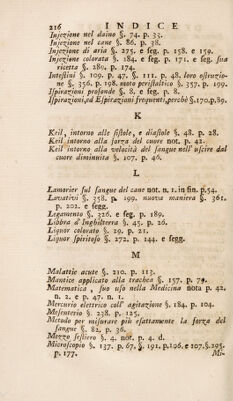 216 INDICE
Injezione nel daino §. 74. p. 33.
Injezione nel cane §. 86. p. 38.
Injezione di aria §. 275. e seg. p. 158. e 159.
Injezione colorata §. 184. e seg. p. 171. e seg. sua
ricetta §. 289. p. 174.
Intestini §. 109. p. 47. §. 111. p. 48. loro ostruzio-
ne §. 356. p. 198. moto peristaltico §. 357. p. 199.
Ispirazioni profonde §. 8. e seg. p. 8.
Ispirazioni, ed Espirazioni frequenti, perchè §. 170. p. 89.
K
Keil, intorno alle sistole, e diastole §. 48. p. 28.
Keil intorno alla forza del cuore not. p. 42.
Keil intorno alla velocità del sangue nell'uscire dal
cuore diminuita §. 107. p. 46.
L
Lamorier sul sangue del cane not. n. 1. in fin. p. 54.
Lavativi §. 358. p. 199. nuova maniera §. 361.
p. 202. e segg.
Legamento §. 326. e seg. p. 189.
Libbra d'Inghilterra §. 45. p. 26.
Liquor colorato §. 29. p. 21.
Liquor spiritoso §. 272. p. 144. e segg.
M
Malattie acute §. 210. p. 113.
Mantice applicato alla trachea §. 157. p. 79.
Matematica, suo uso nella Medicina nota p. 42.
n. 2. e p. 47. n. 1.
Mercurio elettrico coll' agitazione §. 184. p. 104.
Mesenterio §. 238. p. 125.
Metodo per misurare più esattamente la forza del
sangue §. 82. p. 36.
Mezzo sestiero §. 4. not. p. 4. d.
Microscopio §. 137. p. 67. §. 191. p. 106. e 107. §. 295.
p. 177. Mi-